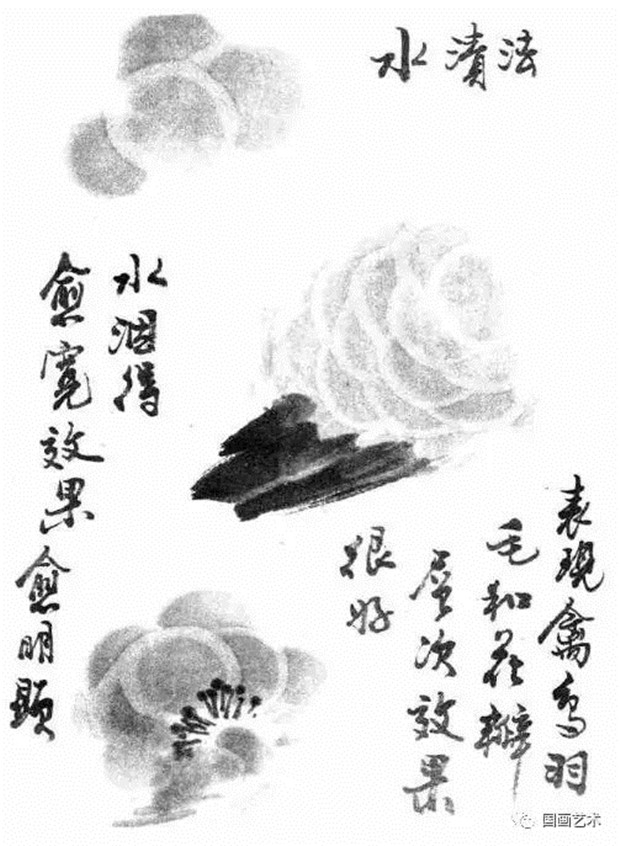 水渍法
表现禽鸟羽
毛和花瓣
层次效果
很好
水洇得
愈宽效果愈明显
国画艺术